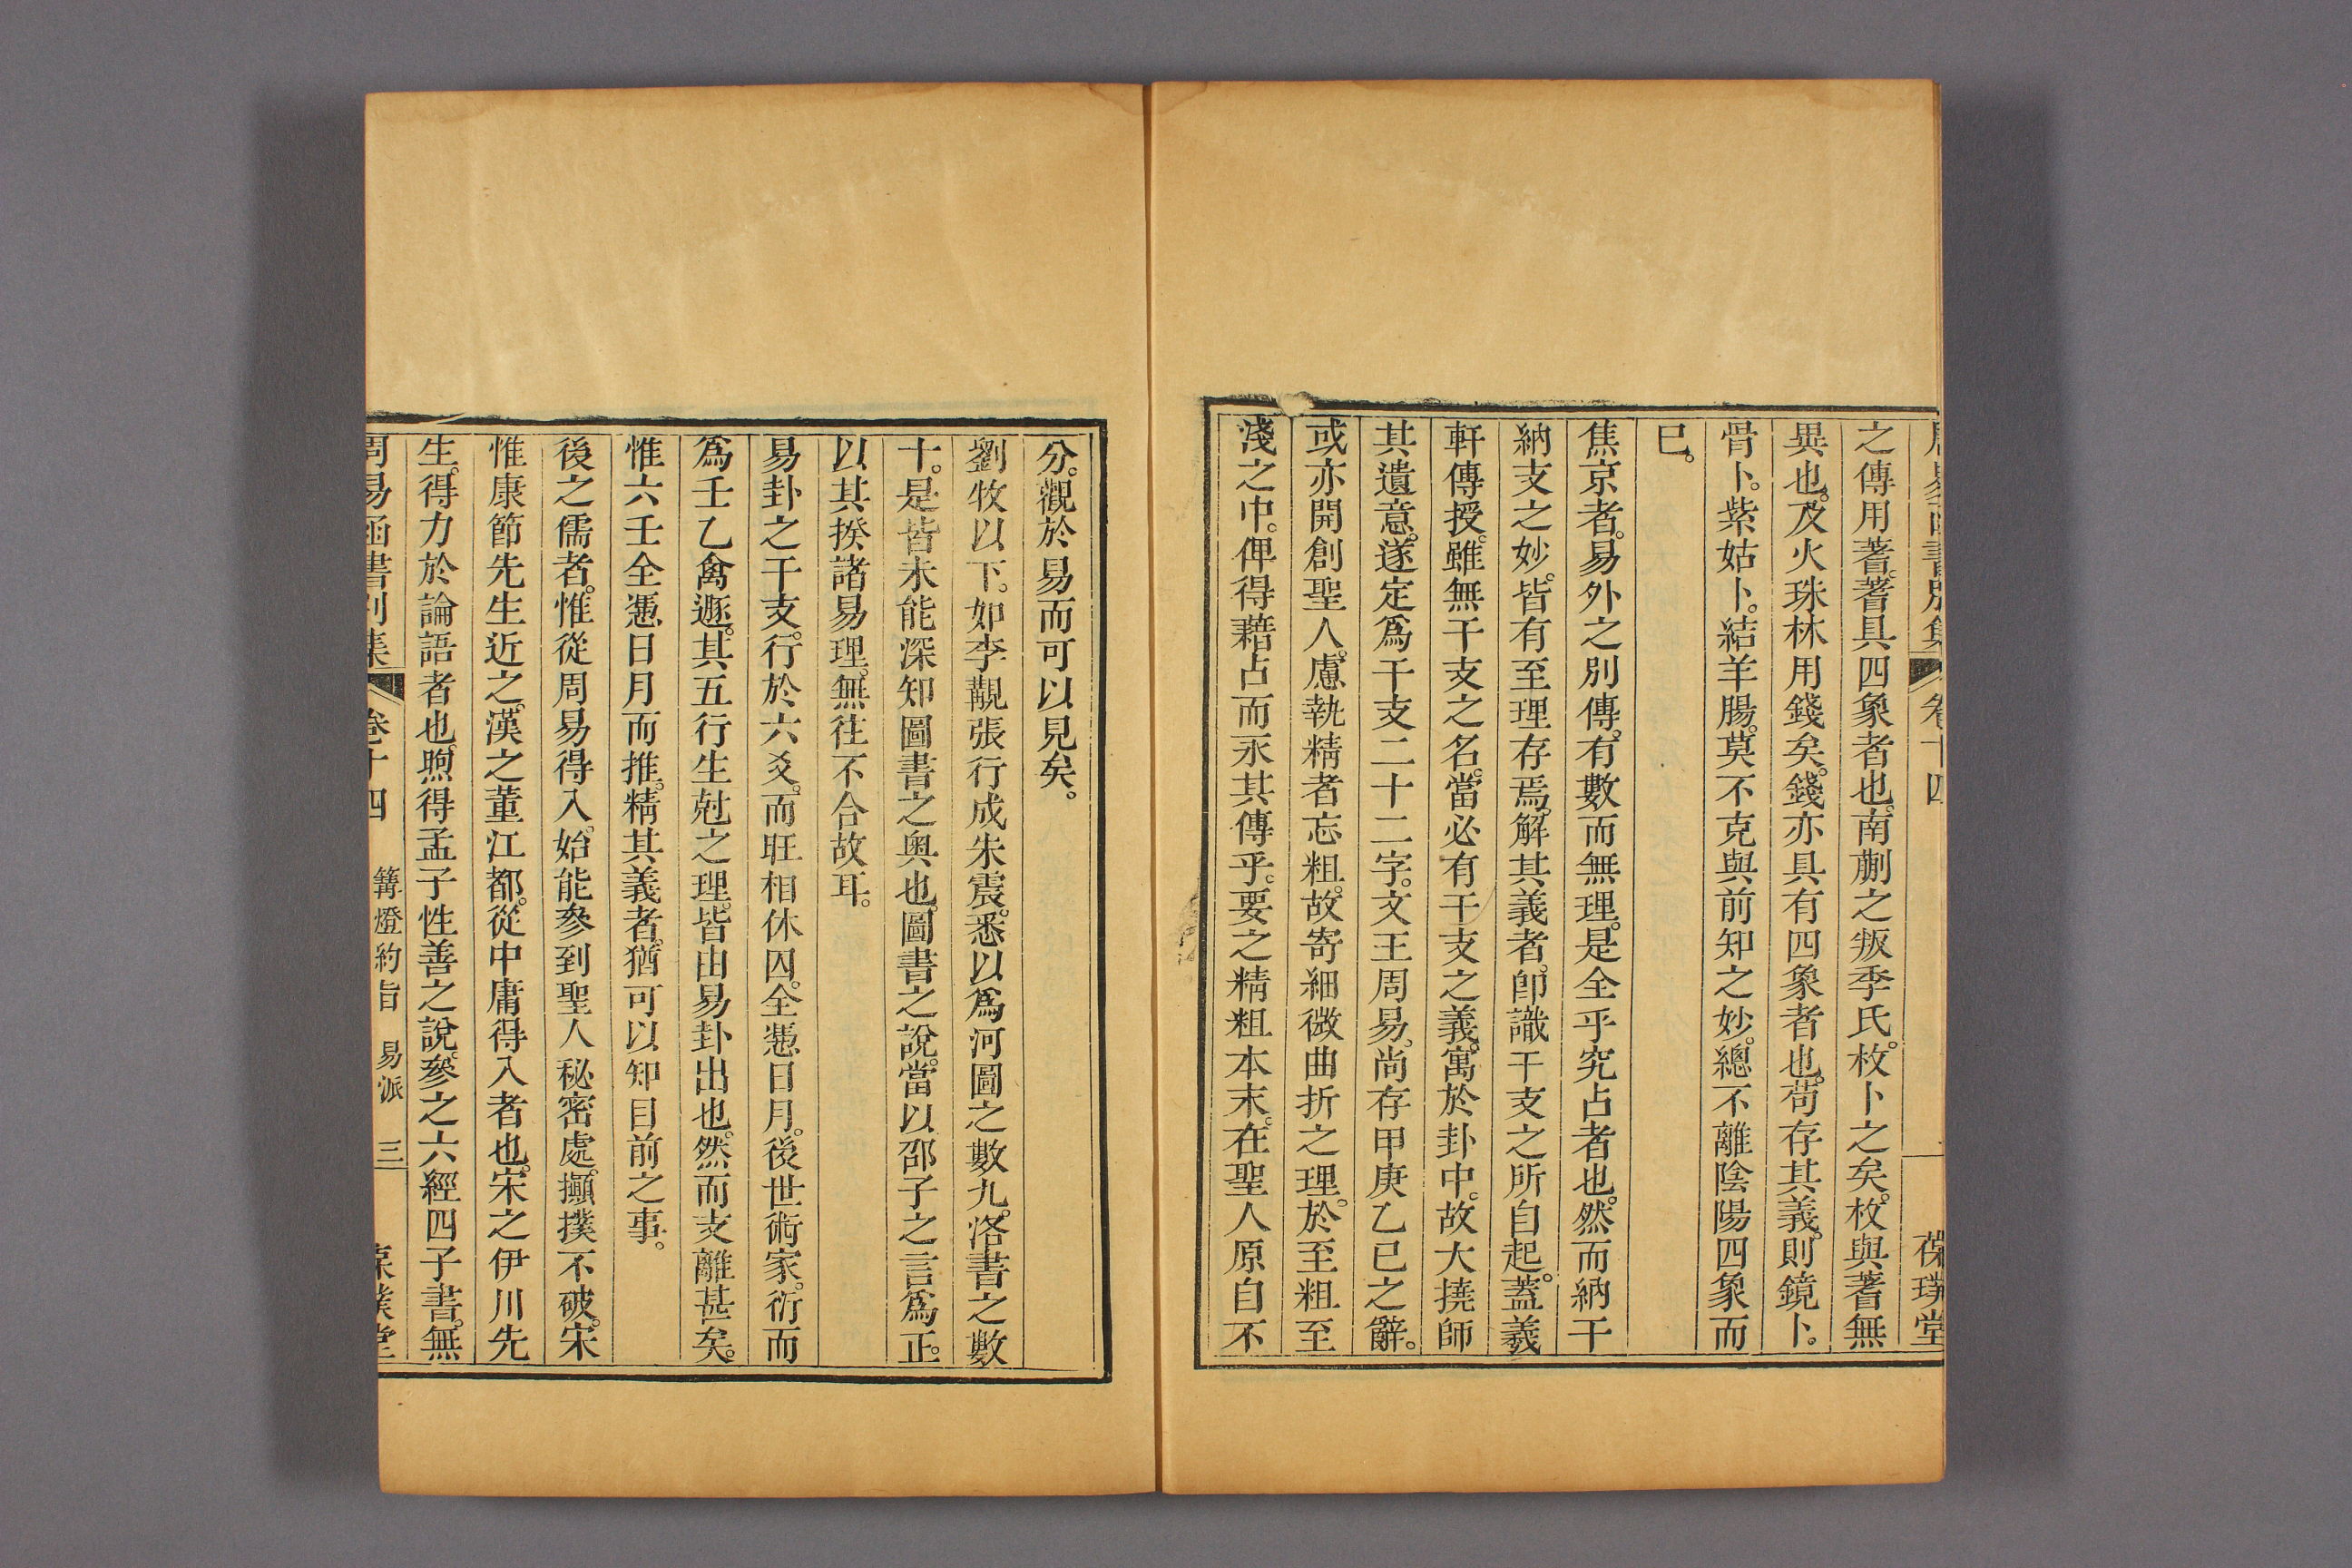 周易函書別集 卷十四 葆璞堂
之傳用蓍。蓍具四象者也。南蒯之叛季氏。枚卜之矣。枚與蓍無
異也。及火珠林用錢矣。錢亦具有四象者也。苟存其義。則鏡卜。
骨卜。紫姑卜。結羊腸。莫不克與前知之妙。總不離陰陽四象而
已。
焦京者。易外之別傳。有數而無理。是全乎究占者也。然而納干
納支之妙。皆有至理存焉。解其義者。卽識干支之所自起。蓋羲
軒傳授。雖無干支之名。當必有干支之義。寓於卦中。故大撓師
其遺意。遂定爲干支二十二字。文王周易。尚存甲庚乙已之辭。
或亦開創聖人。慮執精者忘粗。故寄細微曲折之理。於至粗至
淺之中。俾得藉占而永其傳乎。要之精粗本末。在聖人原自不
分。觀於易而可以見矣。
劉牧以下。如李覯張行成朱震。悉以爲河圖之數九。洛書之數
十。是皆未能深知圖書之奧也。圖書之說。當以邵子之言爲正。
以其揆諸易理。無往不合故耳。
易卦之干支。行於六爻。而旺相休囚。全憑日月。後世術家。衍而
爲壬乙禽遯。其五行生尅之理。皆由易卦出也。然而支離甚矣。
惟六壬全憑日月而推。精其義者。猶可以知目前之事。
後之儒者。惟從周易得入。始能參到聖人秘密處。攧撲不破。宋
惟康節先生近之。漢之董江都。從中庸得入者也。宋之伊川先
生。得力於論語者也。煦得孟子性善之說。參之六經四子書。無
周易函書別集 卷十四 篝燈約旨 易派 三 葆璞堂